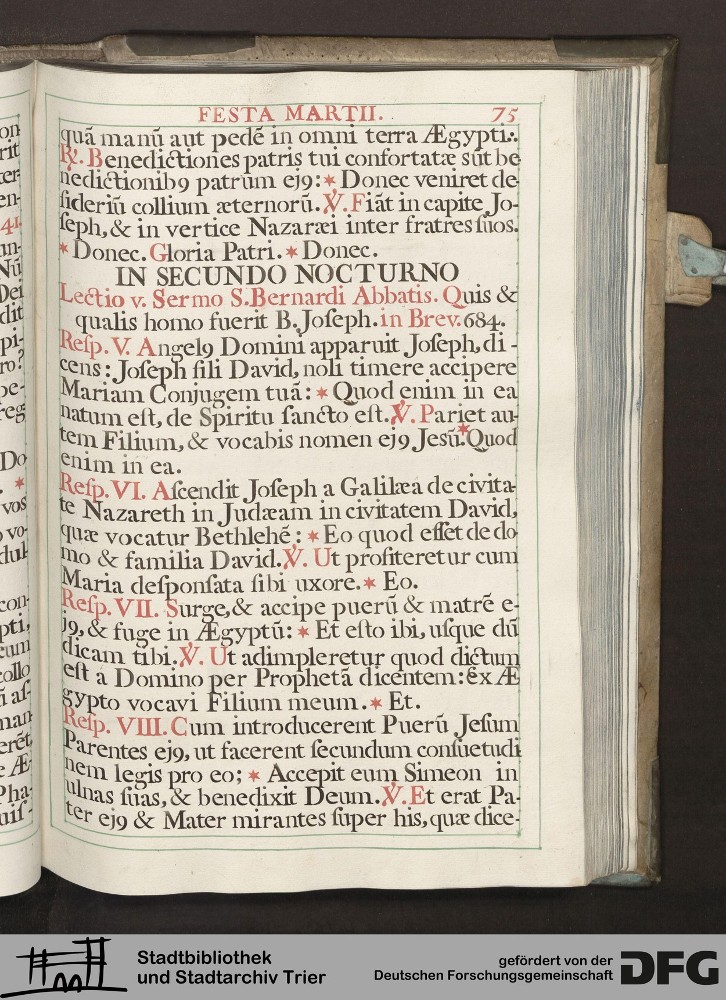 FESTA MARTII. 75
quā manū aut pedē in omni terra Ægypti.
℟. Benedictiones patris tui confortatæ sūt be
nedictionibꝯ patrum ejꝯ: * Donec veniret de-
ſideriū collium æternorū. ℣. Fiāt in capite Jo-
ſeph, & in vertice Nazaræi inter fratres ſuos.
* Donec. Gloria Patri. * Donec.
IN SECUNDO NOCTURNO
Lectio v. Sermo S. Bernardi Abbatis. Quis &
qualis homo fuerit B. Joſeph. in Brev. 684.
Reſp. V. Angelꝯ Domini apparuit Joſeph, di-
cens: Joſeph fili David, noli timere accipere
Mariam Conjugem tuā: * Quod enim in ea
natum eſt, de Spiritu ſancto eſt. ℣. Pariet au-
tem Filium, & vocabis nomen ejꝯ Jesū. * Quod
enim in ea.
Reſp. VI. Aſcendit Joſeph a Galilæa de civita-
te Nazareth in Judæam in civitatem David,
quæ vocatur Bethlehē: * Eo quod eſſet de do
mo & familia David. ℣. Ut profiteretur cum
Maria deſponſata ſibi uxore. * Eo.
Reſp. VII. Surge, & accipe puerū & matrē e-
jꝯ, & fuge in Ægyptū: * Et eſto ibi, uſque dū
dicam tibi. ℣. Ut adimpleretur quod dictum
eſt a Domino per Prophetā dicentem: Ex Æ
gypto vocavi Filium meum. * Et.
Reſp. VIII. Cum introducerent Puerū Jeſum
Parentes ejꝯ, ut facerent ſecundum conſuetudi
nem legis pro eo; * Accepit eum Simeon in
ulnas ſuas, & benedixit Deum. ℣. Et erat Pa-
ter ejꝯ & Mater mirantes ſuper his, quæ dice-
Stadtbibliothek
und Stadtarchiv Trier
gefördert von der
Deutschen Forschungsgemeinschaft DFG